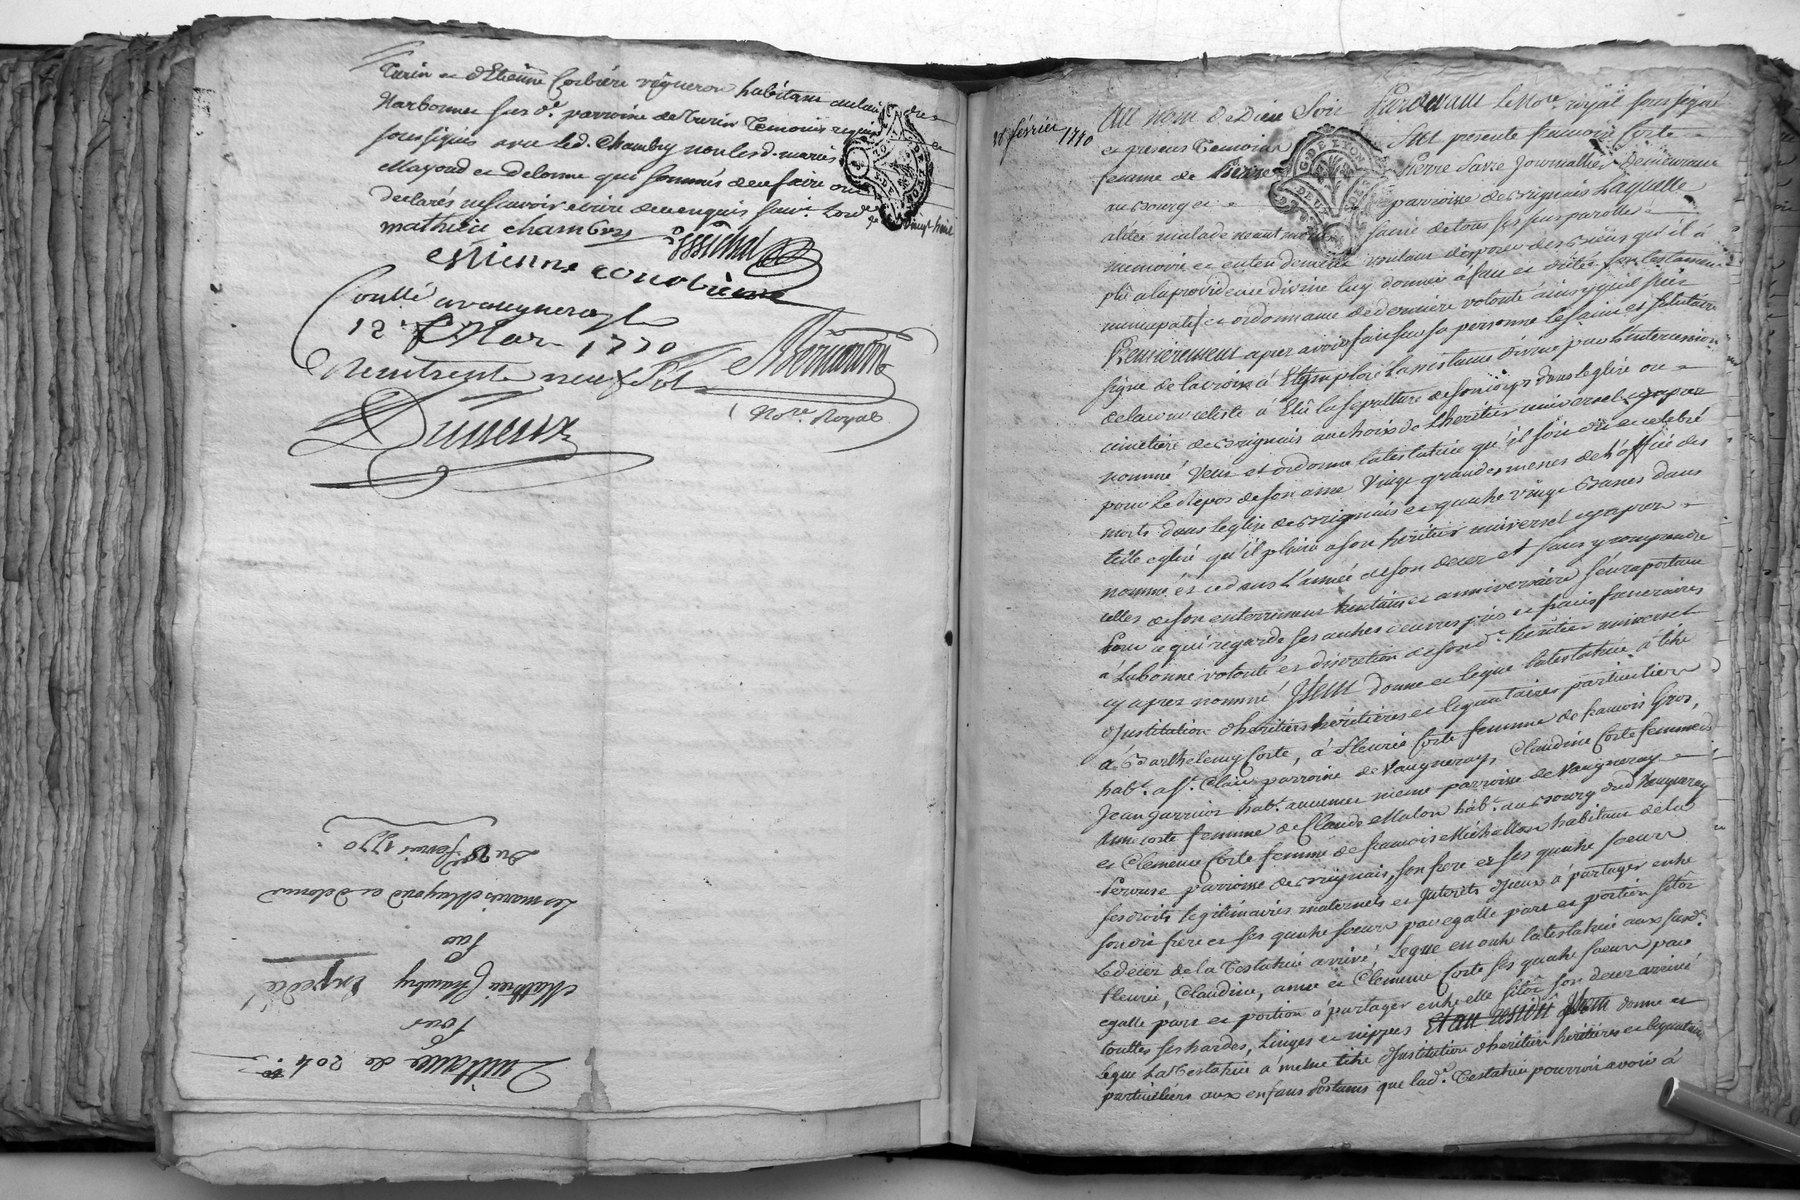 Turin et d'Etienne Corbiere vigneron habitant au lieu de
Narbonne sus de. parroisse de Turin Temoins requis
soussignés avec led. Chambry non lesd. mariés
Mayoud et Delorme qui sommés de ce faire ont
declarés ne scavoir ecrire de ce enquis suiv. Lord.ce
mathieu chambry
estienne courbiere
Conllé a vaugneray le
12e Mars 1770
Reçu trente neuf sols
Not.re Royal
Du 28e fevrier 1770
Les mariés Mayoud et Delorme
par
Mathieu Chambry Expedié
pour
Quittance de 204 #
28 fevrier 1770
Au nom de Dieu Soit Pardevant le No.re royal soussigné
et presens Temoins fut presente francoise Corte
femme de Pierre Pierre Savre Journallier demeurant
au Bourg et parroisse de Brignais Laquelle
alitée malade neantmoins saine de tous ses sens parolle
memoire et entendement voulant disposer des Biens qu'il à
plû a la providence divine luy donner à fait et dicté son testament
nuncupatif et ordonnance de derniere volonté ainsy qu'il suit
Premierement apres avoir fait sur sa personne le saint et salutaire
signe de la croix à Implorée l'assistance divine par l'intercession
de la cour celeste à Elû la sepulture de son corps dans leglise ou
cimetiere de Brignais au choix de l'heritier universel cy apres
nommé veut et ordonne la testatrice qu'il soit dit et celebré
pour Le Repos de son ame vingt grandes messes de l'office des
morts dans leglise de Brignais et quatre vingt Basses dans
telle eglise qu'il plaira a son heritier universel cy apres
nommé, et ce dans L'année de son deces et sans y comprendre
celles de son enterrement trentain et anniversaire s'en raportant
pour ce qui regarde ses autres œuvres pies et frais funeraires
a La bonne volonté et discretion de sond.t heritier universel
cy apres nommé Item donne et legue la testatrice a titre
d'Institution d'heritiers heritieres et legataires particuliers
à Barthelemy Corte, à fleurie Corte femme de francois Gros,
hab.t a S.t Clair parroisse de Vaugneray, Claudine Corte femme de
Jean Jarricot hab.t au meme parroisse de Vaugneray
anne Corte femme de Claude Malon hab.t au Bourg dud Vaugneray
et Clemence Corte femme de francois Michallon habitant de la
Perouse parroisse de Brignais, son frere et ses quatre sœurs
ses droits legitimaires maternels et Interets d'Iceux à partager entre
sond frere et ses quatre sœurs par egalle part et portion sitot
Le deces de la Testatrice arrivé, Legue en outre la testatrice aux susd.es
fleurie, Claudine, anne et Clemence Corte ses quatre sœurs par
egalle part et portion à partager entre elle sitot son deces arrivé
touttes ses hardes, Linges et nippes Et au residû Item donne et
Legue La Testatrice à meme titre d'Institution d'heritiers heritieres et legataires
particuliers aux enfans Postumes que lad.e Testatrice pourroit avoir à